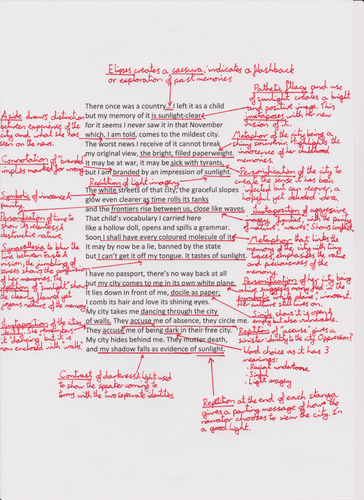 Elipses creates a caesura, indicates a flashback
or exploration of past memories
Pathetic fallacy and use
of sunlight creates a bright
and positive image. This
juxtaposes with her new
vision of it.
There once was a country... I left it as a child
but my memory of it is sunlight-clear
for it seems I never saw it in that November
which, I am told, comes to the mildest city.
The worst news I receive of it cannot break
my original view, the bright, filled paperweight.
It may be at war, it may be sick with tyrants,
but I am branded by an impression of sunlight.
Aside draws distinction
between experiences of the
city and what she has
seen on the news.
Connotation of branded
implies marked for wrong
Metaphor of the city being a
shiny souvenir. Highlights the
innocence of her childhood
memories.
Personification of the city to
create the sense it has been
infected but can recover, a
hopeful yet deluded idea.
Repitition of light imagery
The white streets of that city, the graceful slopes
glow even clearer as time rolls its tanks
and the frontiers rise between us, close like waves.
That child's vocabulary I carried here
like a hollow doll, opens and spills a grammar.
Soon I shall have every coloured molecule of it.
It may by now be a lie, banned by the state
but I can't get it off my tongue. It tastes of sunlight.
Symbolic of innocence
purity.
Personification of time to
show its relentless &
destructive nature.
Synaesthesia to blur the
line between taste &
vision, the jumbling of
senses shows the jumbling
of her memories. The
repitition of "sunlight" shows
the clearly flawed yet
joyous nature of the memory
Juxtaposition of aggressive
imagery, frontiers, with the purity
of nature, "waves". Shows conflict
Metaphor that links the
memory of the city with tiny
traces, emphasises the value
and preciousness of the
memory.
I have no passport, there's no way back at all
but my city comes to me in its own white plane.
It lies down in front of me, docile as paper;
I comb its hair and love its shining eyes.
My city takes me dancing through the city
of walls. They accuse me of absence, they circle me.
They accuse me of being dark in their free city.
My city hides behind me. They mutter death,
and my shadow falls as evidence of sunlight.
Personification of city being
Simile shows it is open and
empty but also vulnerable.
Repitition of 'accuse' gives a
sinister identity to the city. Oppression?
Word choice as it has 3
meanings:
· Racial undertones
· Light imagery
Juxtaposition of the cities
duality. She remembers
it "dancing" but it is
now enclosed with "walls"
Contrast of darkness & light used
to show the speaker coming to
terms with the two separate identities
Repitition at the end of each stanza
gives a parting message of how the
narrator chooses to view the city. In
a good light.